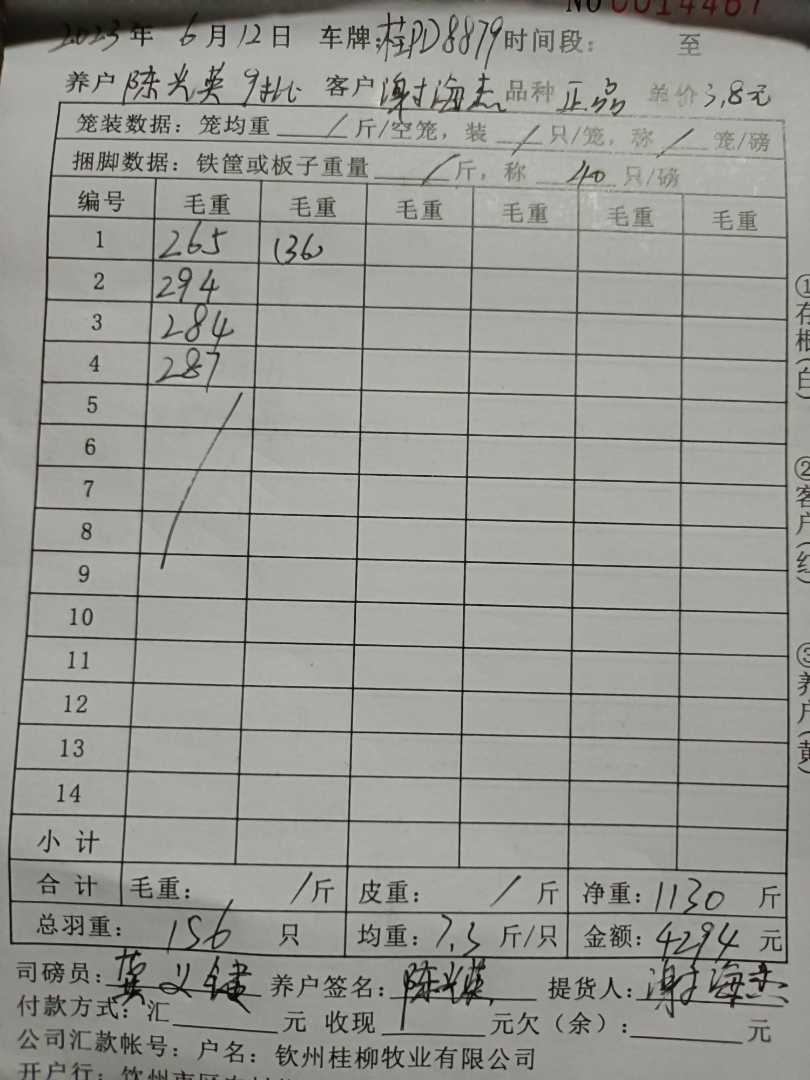 No 0014467
2023年 6月12日 车牌:桂PD8879 时间段: 至
养户 陈光英 9批 客户 谢海杰 品种 正品 单价 3.8元
笼装数据: 笼均重 / 斤/空笼, 装 / 只/笼, 称 / 笼/磅
捆脚数据: 铁筐或板子重量 / 斤, 称 40 只/磅
编号 毛重 毛重 毛重 毛重 毛重 毛重
1 265 (36)
2 294
3 284
4 287
5
6
7
8
9
10
11
12
13
14
小计
合计 毛重: / 斤 皮重: / 斤 净重: 1130 斤
总羽重: 156 只 均重: 7.3 斤/只 金额: 4294 元
司磅员: 龚义健 养户签名: 陈光英 提货人: 谢海杰
付款方式: 汇 元 收现 元欠(余): 元
公司汇款帐号: 户名: 钦州桂柳牧业有限公司
开户行: 钦州市区
①存根(白)
②客户(红)
③养户(黄)